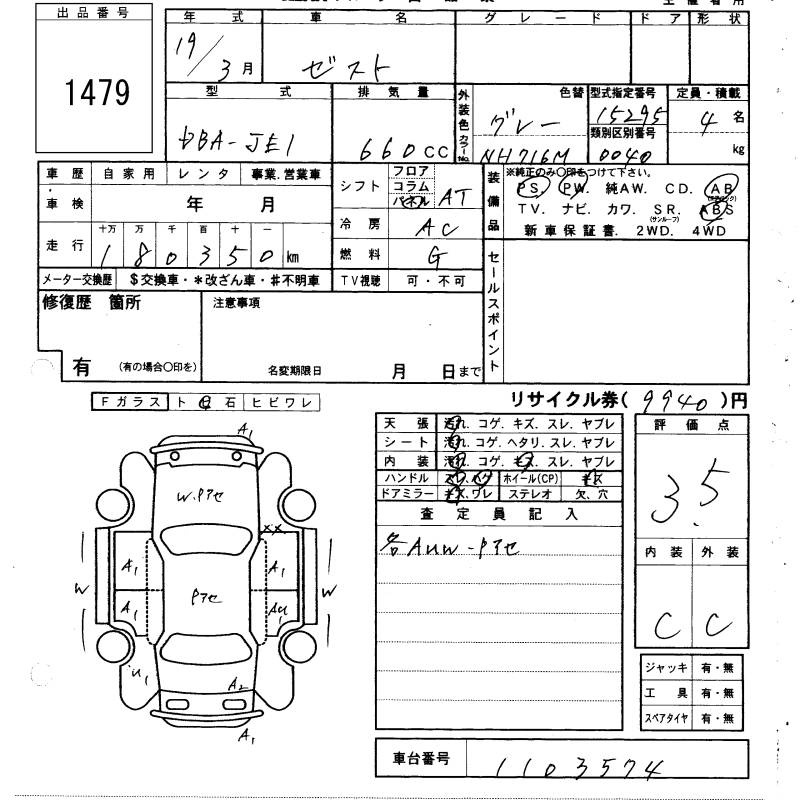 出品番号
1479
年式 車名 グレード ドア 形状
19/3月 ゼスト
型式 排気量 外装色 色替 型式指定番号 定員・積載
DBA-JE1 660CC グレー 15295 4名
カラーNo. NH716M 類別区別番号 0040 kg
車歴 自家用 レンタ 事業.営業車
車検 年 月
走行 十万 万 千 百 十 一
180350km
メーター交換歴 $交換車・*改ざん車・#不明車
シフト フロア コラム パネル AT
冷房 AC
燃料 G
TV視聴 可・不可
装備品 ※純正のみ○印をつけて下さい。
PS. PW. 純AW. CD. AB
TV. ナビ. カワ. SR. ABS
(サンルーフ)
新車保証書. 2WD. 4WD
セールスポイント
修復歴 箇所 注意事項
有 (有の場合○印を) 名変期限日 月 日まで
リサイクル券( 9940 )円
Fガラス ト 石 ヒビワレ
天張 汚れ. コゲ. キズ. スレ. ヤブレ
シート 汚れ. コゲ. ヘタリ. スレ. ヤブレ
内装 汚れ. コゲ. キズ. スレ. ヤブレ
ハンドル スレ. ハゲ ホイール(CP) キズ
ドアミラー キズ. ワレ ステレオ 欠、穴
査定員記入
各AUW-Pアセ
評価点
3.5
内装 外装
C C
ジャッキ 有・無
工具 有・無
スペアタイヤ 有・無
車台番号 1103574
A1
W.Pアセ
××
A1 A1
W Pアセ W
A1 AU
U1
A2
A1